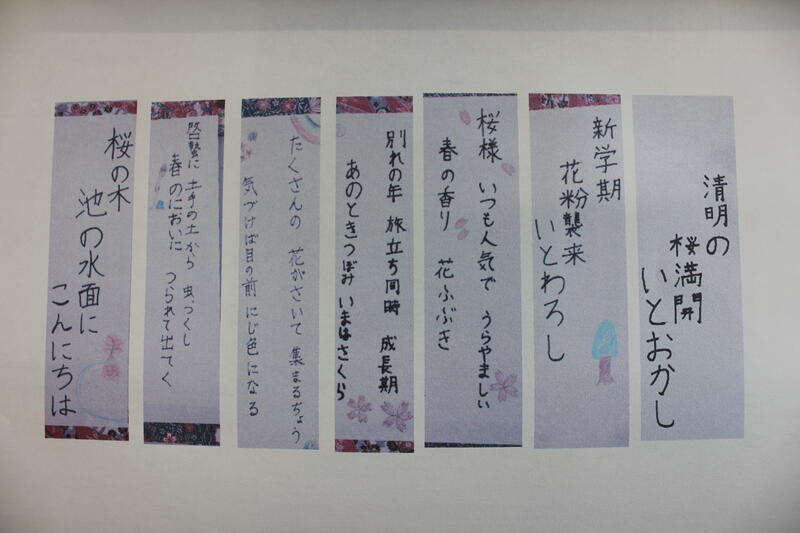 清明の
桜満開
いとおかし
新学期
花粉襲来
いとわろし
桜様 いつも人気で うらやましい
春の香り 花ふぶき
別れの年 旅立ち同時 成長期
あのときつぼみ いまはさくら
たくさんの 花がさいて 集まるちょう
気づけば目の前 にじ色になる
啓蟄に 土手の土から 虫、つくし
春のにおいに つられて出てく
桜の木
池の水面に
こんにちは